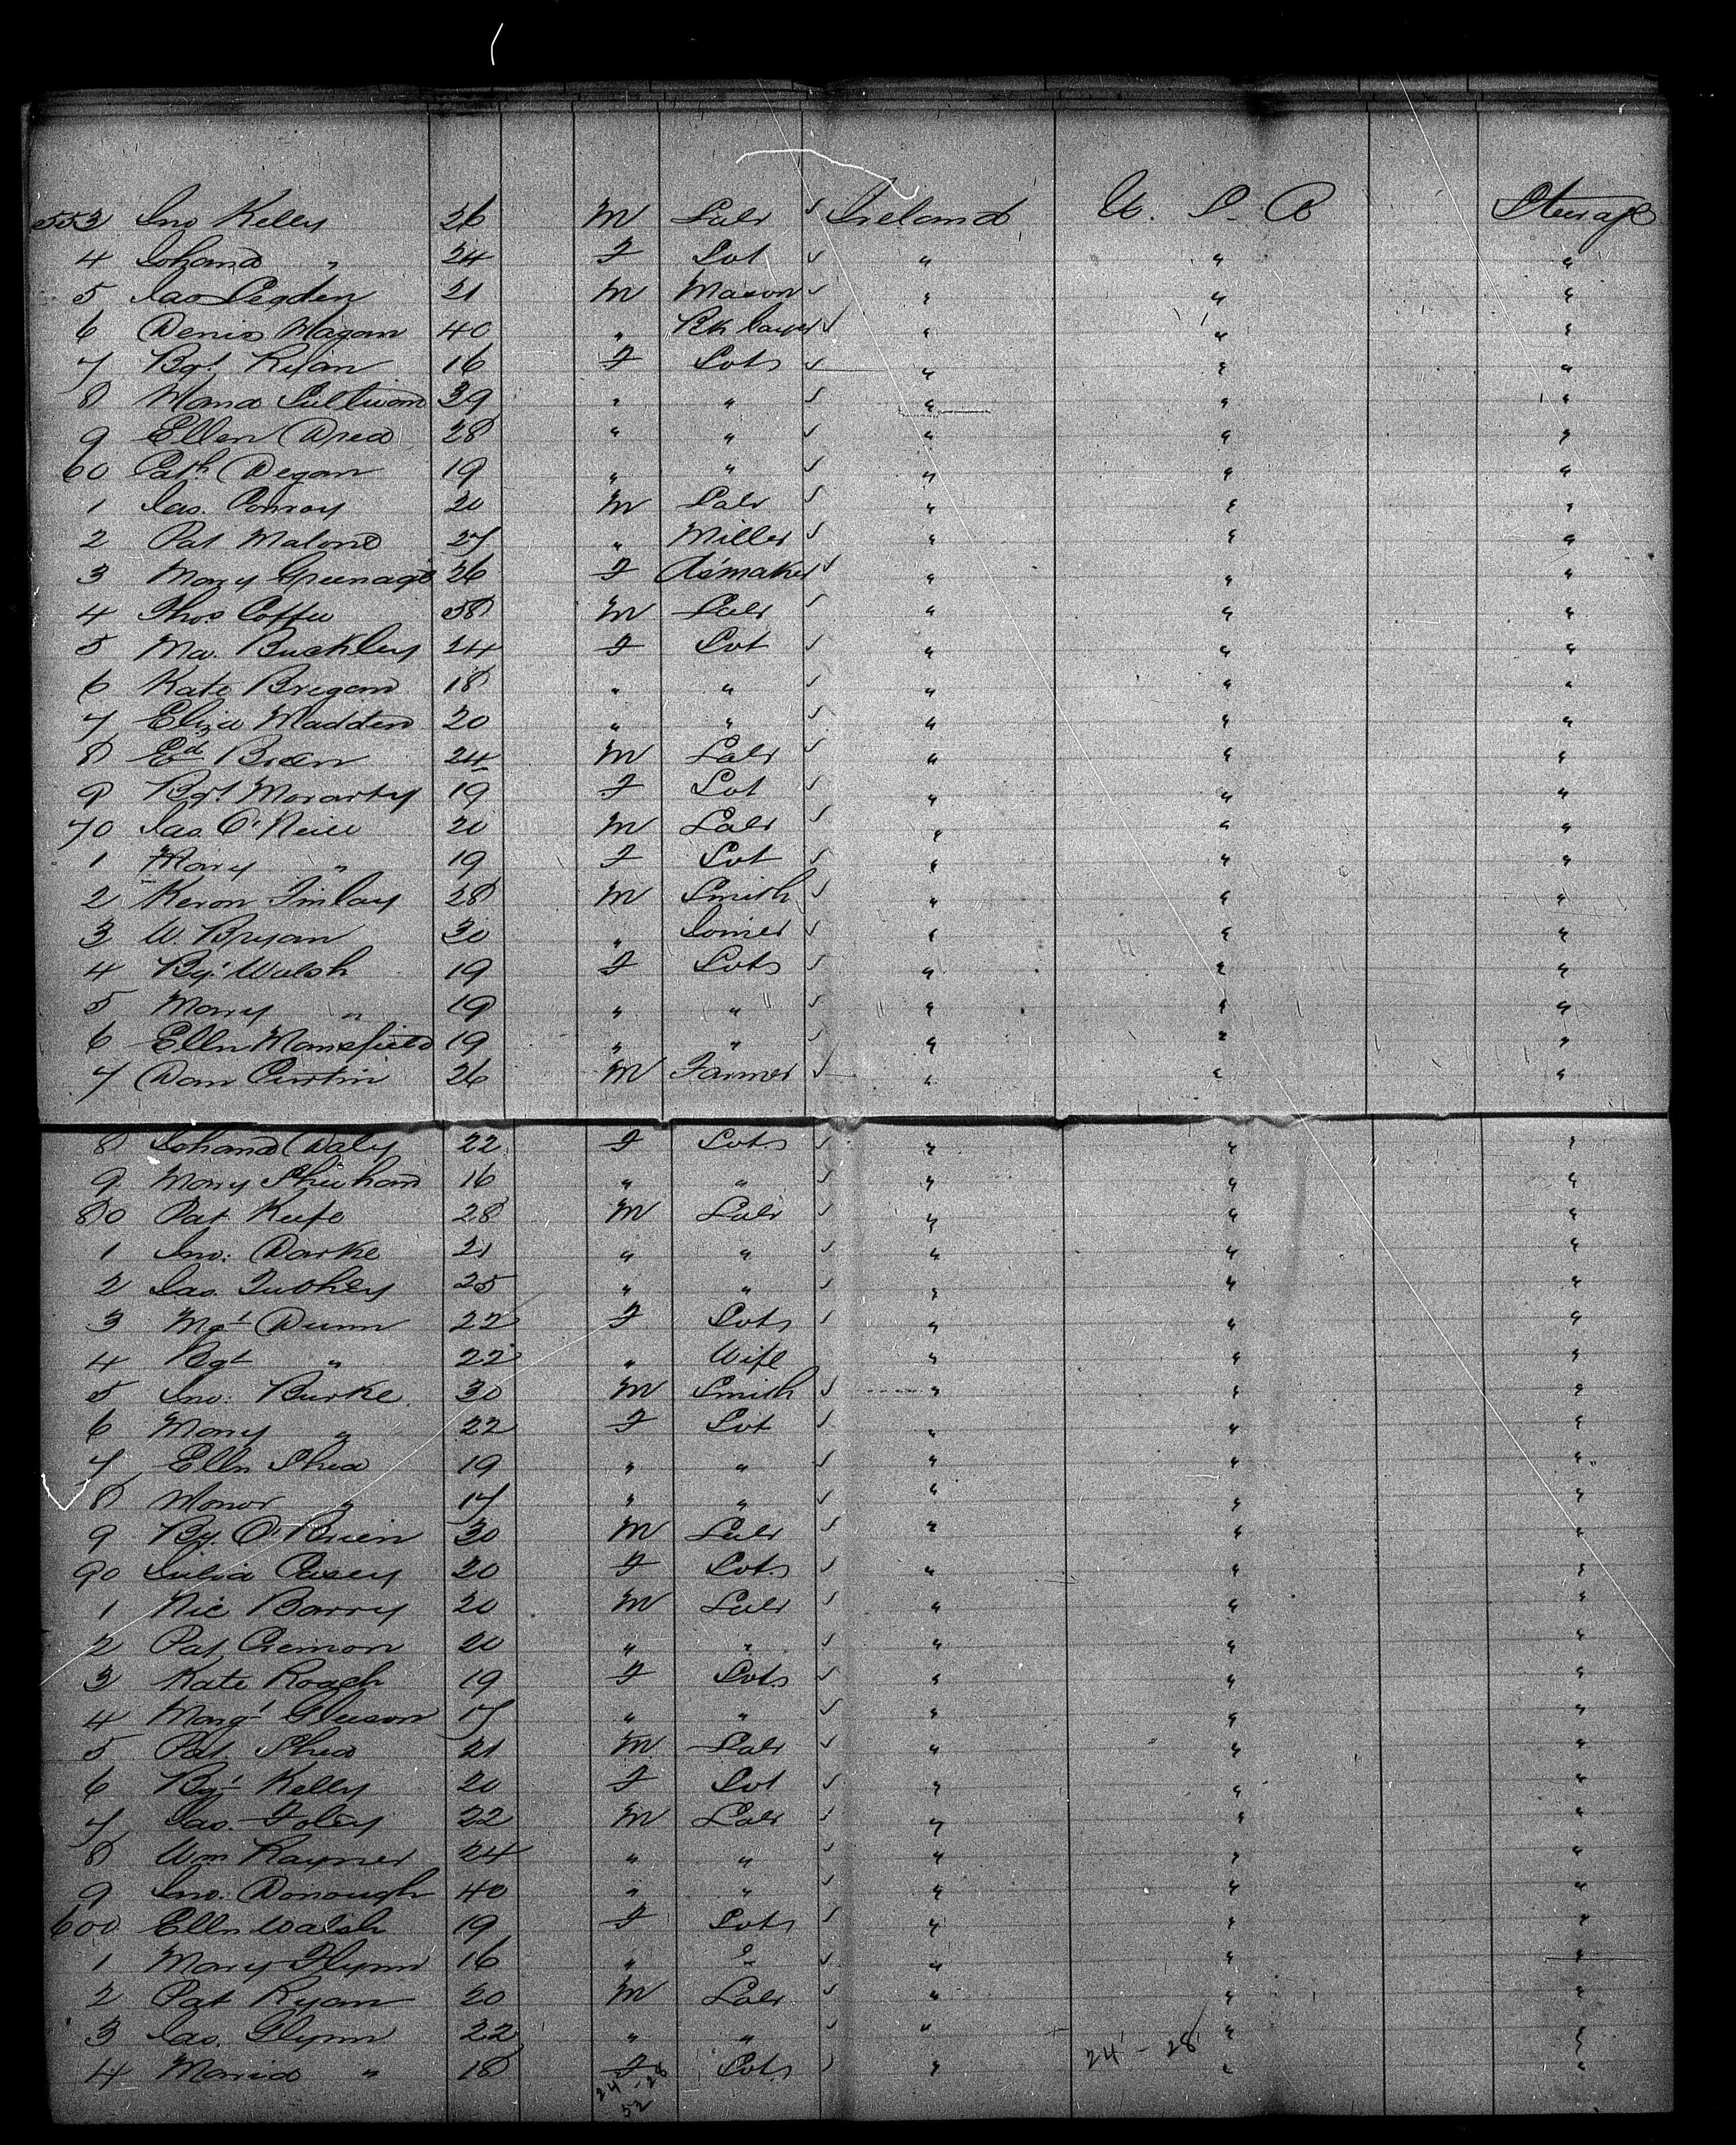 553 Jno Kelly 26 M Labr ✓ Ireland U. S. A Steerage
4 Johana " 24 F Svt ✓ " " "
5 Jas Legden 21 M Mason ✓ " " "
6 Denis Magan 40 " Bk layer ✓ " " "
7 Bgt Ryan 16 F Svts ✓ " " "
8 Hana Sullivan 39 " " ✓ " " "
9 Ellen Drea 28 " " ✓ " " "
60 Cath Degan 19 " " ✓ " " "
1 Jas. Conroy 20 M Labr ✓ " " "
2 Pat Malone 27 " Miller ✓ " " "
3 Mary Greenage 26 F Ds'maker ✓ " " "
4 Thos Coffee 58 M Labr ✓ " " "
5 Ma. Buckley 24 F Svt ✓ " " "
6 Kate Bregan 18 " " ✓ " " "
7 Eliza Madden 20 " " ✓ " " "
8 Ed Brien 24 M Labr ✓ " " "
9 Bgt Morarty 19 F Svt ✓ " " "
70 Jas. O'Neill 20 M Labr ✓ " " "
1 Mary " 19 F Svt ✓ " " "
2 Keron Finlay 28 M Smith ✓ " " "
3 W. Bryan 30 " Joiner ✓ " " "
4 Bgt Walsh 19 F Svts ✓ " " "
5 Mary " 19 " " ✓ " " "
6 Elln Mansfield 19 " " ✓ " " "
7 Dan Curtin 26 M Farmer ✓ " " "
8 Johana Daly 22 F Svts ✓ " " "
9 Mary Sheehan 16 " " ✓ " " "
80 Pat Keefe 28 M Labr ✓ " " "
1 Jno. Darke 21 " " ✓ " " "
2 Jas. Tuohey 25 " " ✓ " " "
3 Mgt Dunn 22 F Svts ✓ " " "
4 Bgt " 22 " Wife " " "
5 Jno. Burke 30 M Smith ✓ " " "
6 Mary " 22 F Svt ✓ " " "
7 Elln Shea 19 " " ✓ " " "
8 Honor " 17 " " ✓ " " "
9 By. O'Brien 30 M Labr ✓ " " "
90 Julia Casey 20 F Svts ✓ " " "
1 Nic Barry 20 M Labr ✓ " " "
2 Pat Cremon 20 " " ✓ " " "
3 Kate Roach 19 F Svts ✓ " " "
4 Margt Gleeson 17 " " ✓ " " "
5 Pat. Shea 21 M Labr ✓ " " "
6 Bgt Kelly 20 F Svt ✓ " " "
7 Jas. Foley 22 M Labr ✓ " " "
8 Wm Rayner 24 " " ✓ " " "
9 Jno. Donough 40 " " ✓ " " "
600 Elln Walsh 19 F Svts ✓ " " "
1 Mary Flynn 16 " " ✓ " " "
2 Pat Ryan 20 M Labr ✓ " " "
3 Jas. Glynn 22 " " ✓ " " "
4 Maria " 18 F Svts ✓ " 24 - 28 " "
24 - 28
52